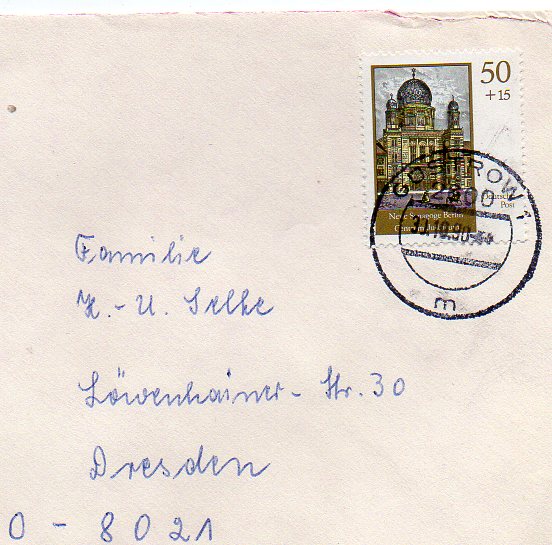 50
+15
Deutsche
Post
Neue Synagoge Berlin
GÜSTROW 1
2600
m
Familie
H.-U. Selke
Löwenhainer-Str. 30
Dresden
O - 8021